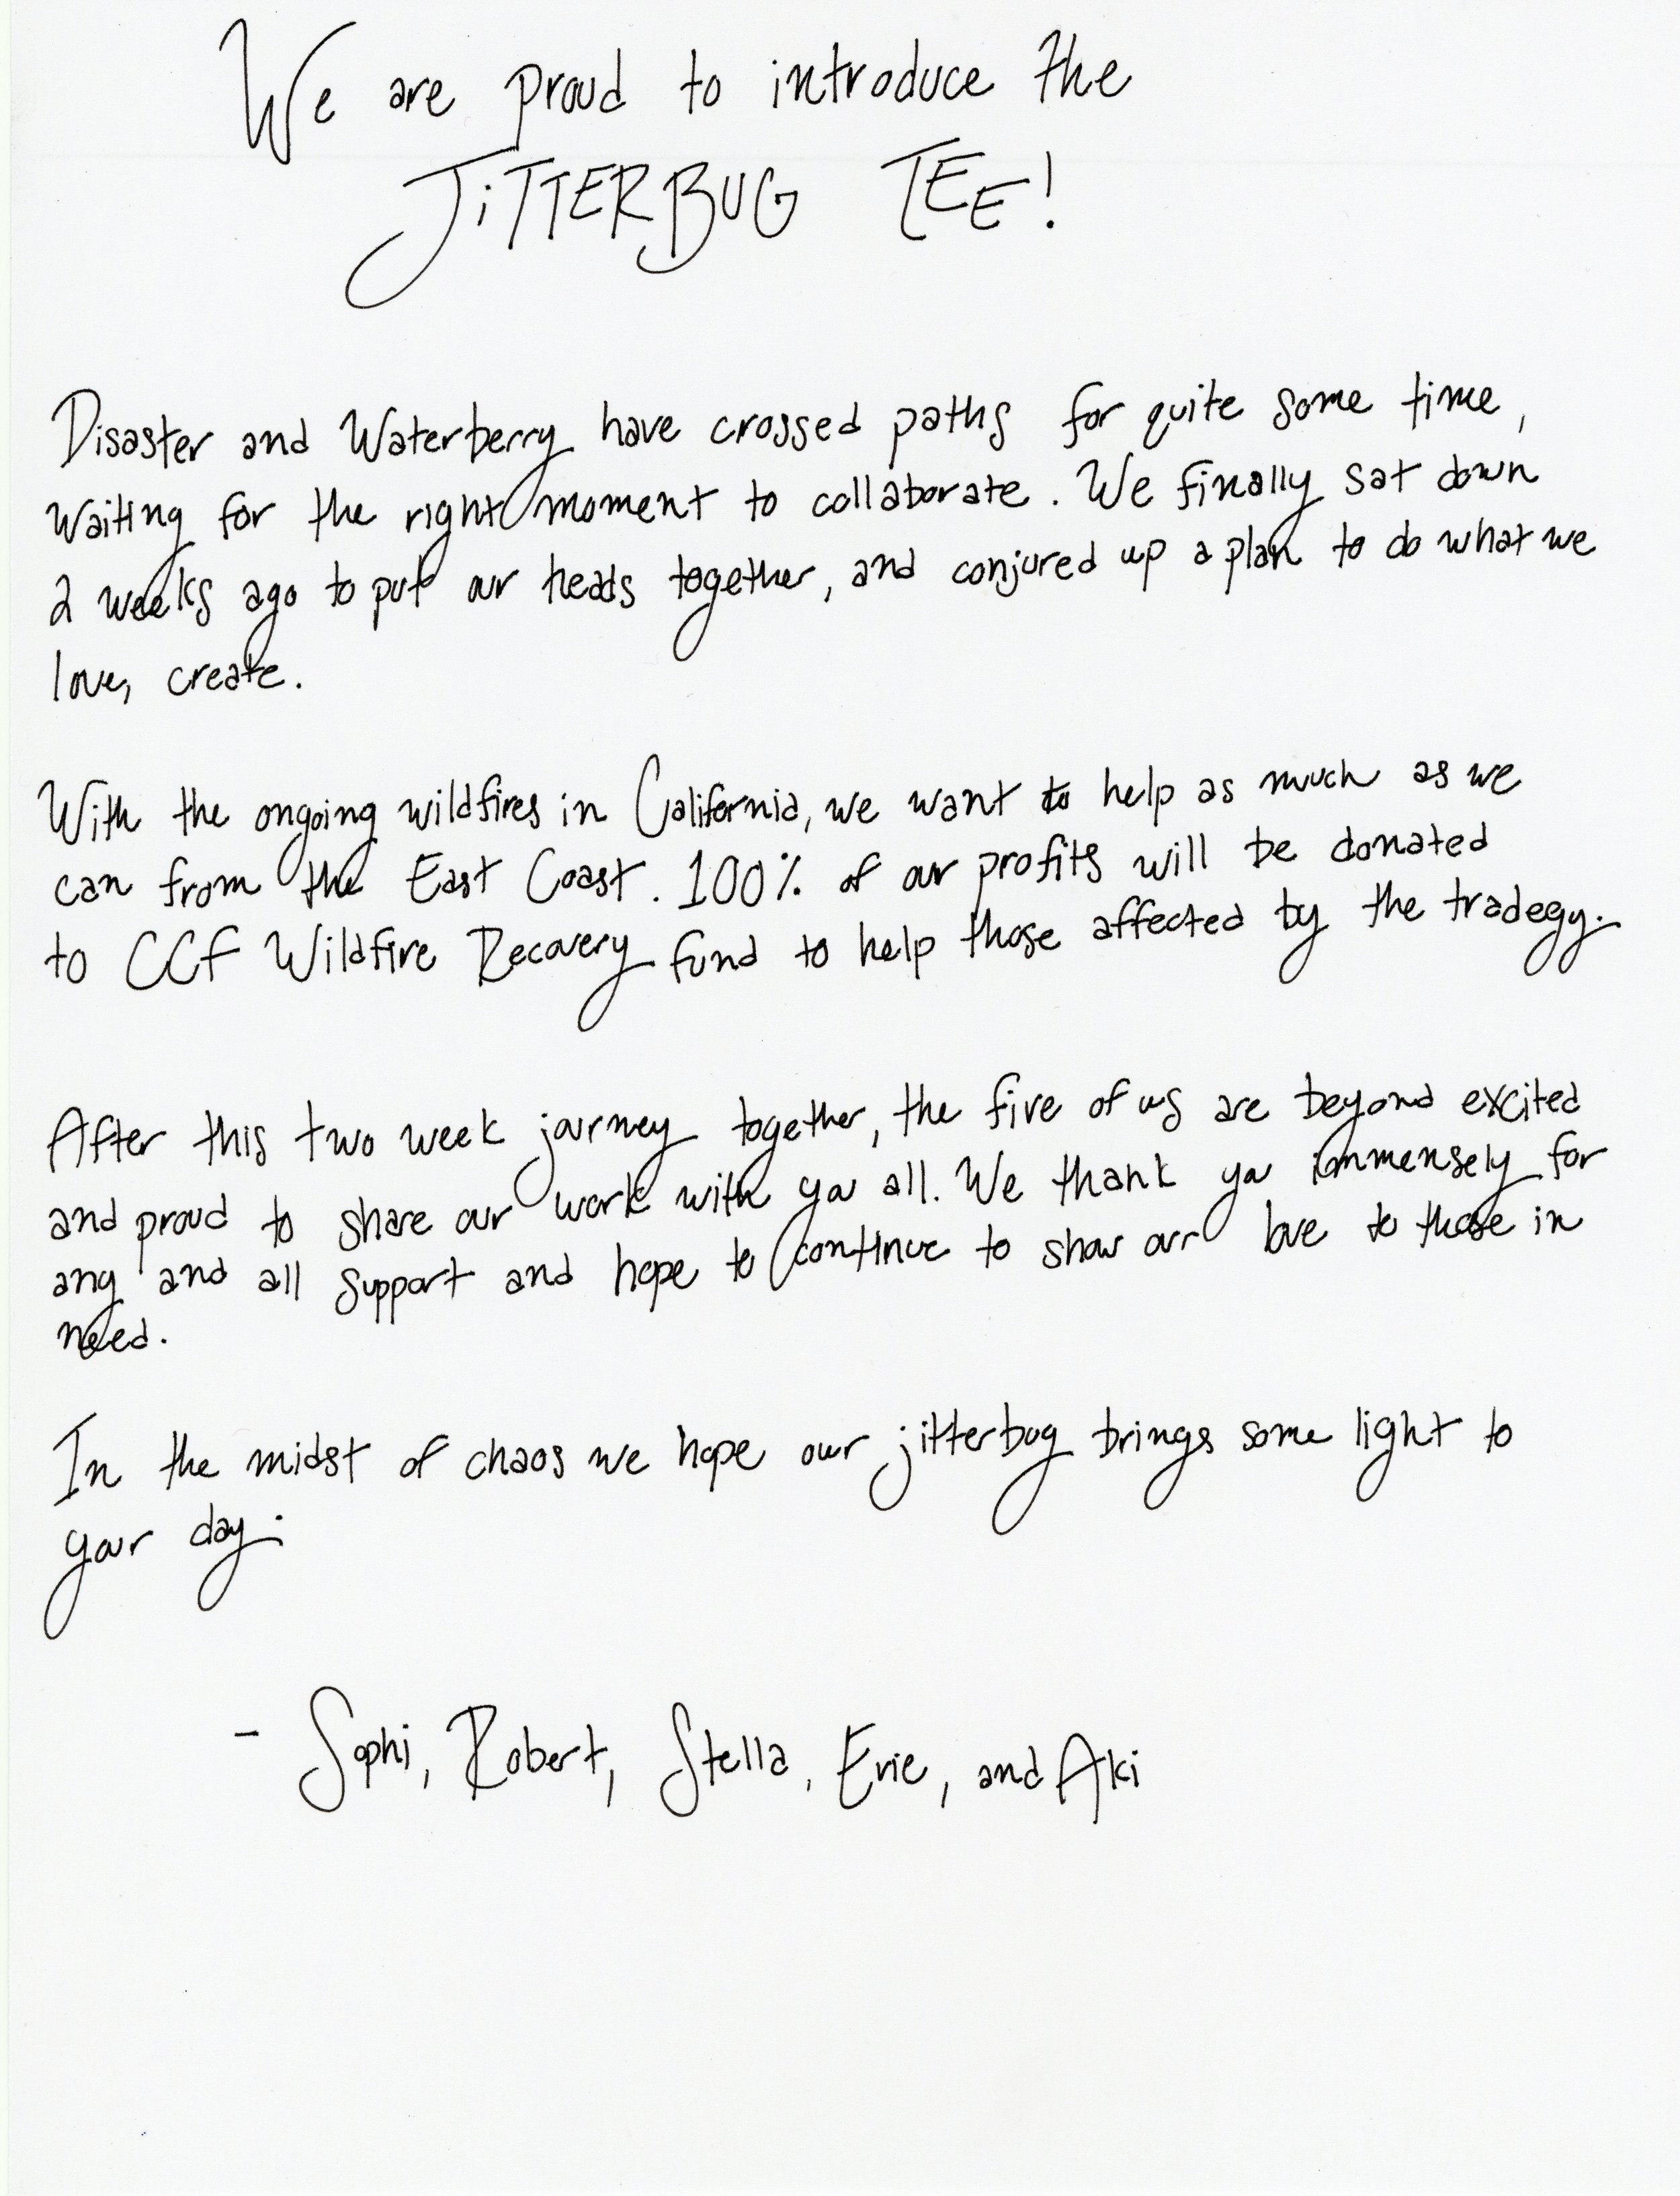 We are proud to introduce the
JiTTERBUG TEE!
Disaster and Waterberry have crossed paths for quite some time,
waiting for the right moment to collaborate. We finally sat down
2 weeks ago to put our heads together, and conjured up a plan to do what we
love, create.
With the ongoing wildfires in California, we want to help as much as we
can from the East Coast. 100% of our profits will be donated
to CCF Wildfire Recovery fund to help those affected by the tradegy.
After this two week journey together, the five of us are beyond excited
and proud to share our work with you all. We thank you immensely for
any and all support and hope to continue to show our love to those in
need.
In the midst of chaos we hope our jitterbug brings some light to
your day.
- Sophi, Robert, Stella, Evie, and Aki